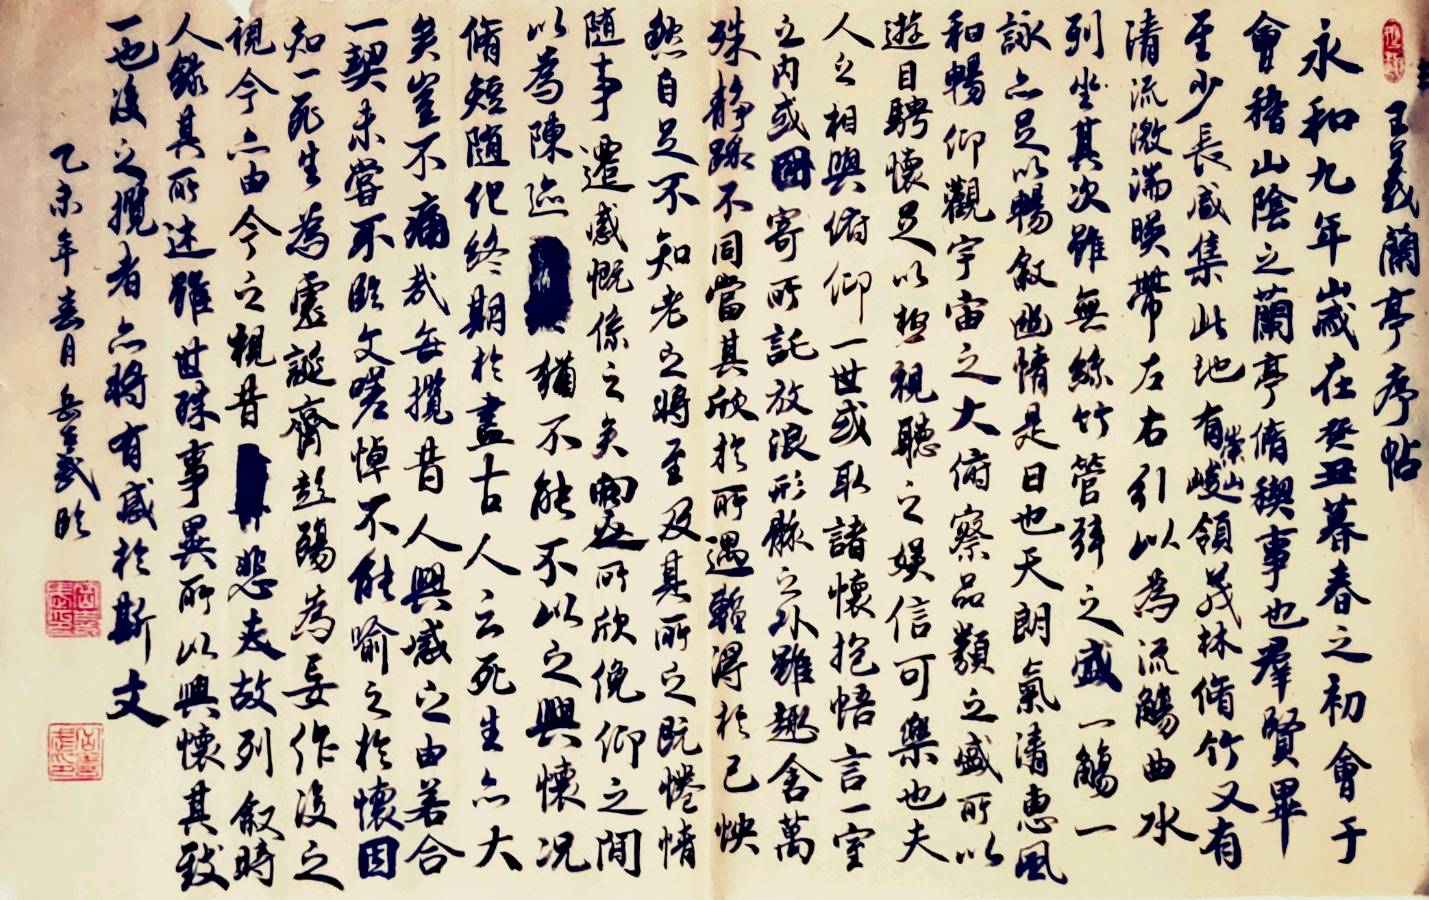 王羲蘭亭序帖
永和九年歲在癸丑暮春之初會于
會稽山陰之蘭亭脩稧事也羣賢畢
至少長咸集此地有崇山峻領茂林脩竹又有
清流激湍暎帶左右引以為流觴曲水
列坐其次雖無絲竹管弦之盛一觴一
詠亦足以暢敘幽情是日也天朗氣清惠風
和暢仰觀宇宙之大俯察品類之盛所以
遊目騁懷足以極視聽之娛信可樂也夫
人之相與俯仰一世或取諸懷抱悟言一室
之內或因寄所託放浪形骸之外雖趣舍萬
殊靜躁不同當其欣於所遇輙得於己怏
然自足不知老之將至及其所之既惓情
隨事遷感慨係之矣向之所欣俛仰之間
以為陳迹猶不能不以之興懷況
脩短隨化終期於盡古人云死生亦大
矣豈不痛哉每攬昔人興感之由若合
一契未嘗不臨文嗟悼不能喻之於懷固
知一死生為虛誕齊彭殤為妄作後之
視今亦由今之視昔悲夫故列敘時
人錄其所述雖世殊事異所以興懷其致
一也後之攬者亦將有感於斯文
乙未年春月岳武臨